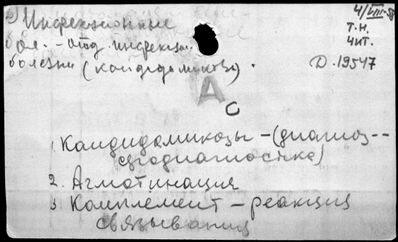 Инфекционные
бол. - отд. инфекци.
болезни (кандидамикозы).
4/VIII-
т.н.
чит.
Д.19547
А
с
1. Кандидамикозы - (диагноз --
сродиагностика)
2. Агмотинация
3. Комплемент - реакция
связывания